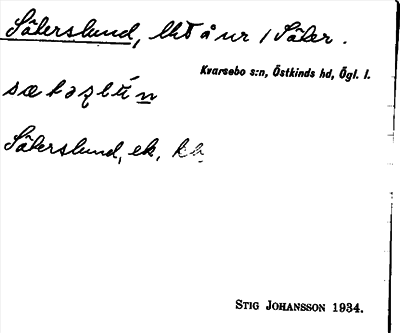 Säterslund, lht å nr 1 Säter.
Kvarsebo s:n, Östkinds hd, Ögl. l.
Säterslund, ek,
STIG JOHANSSON 1934.